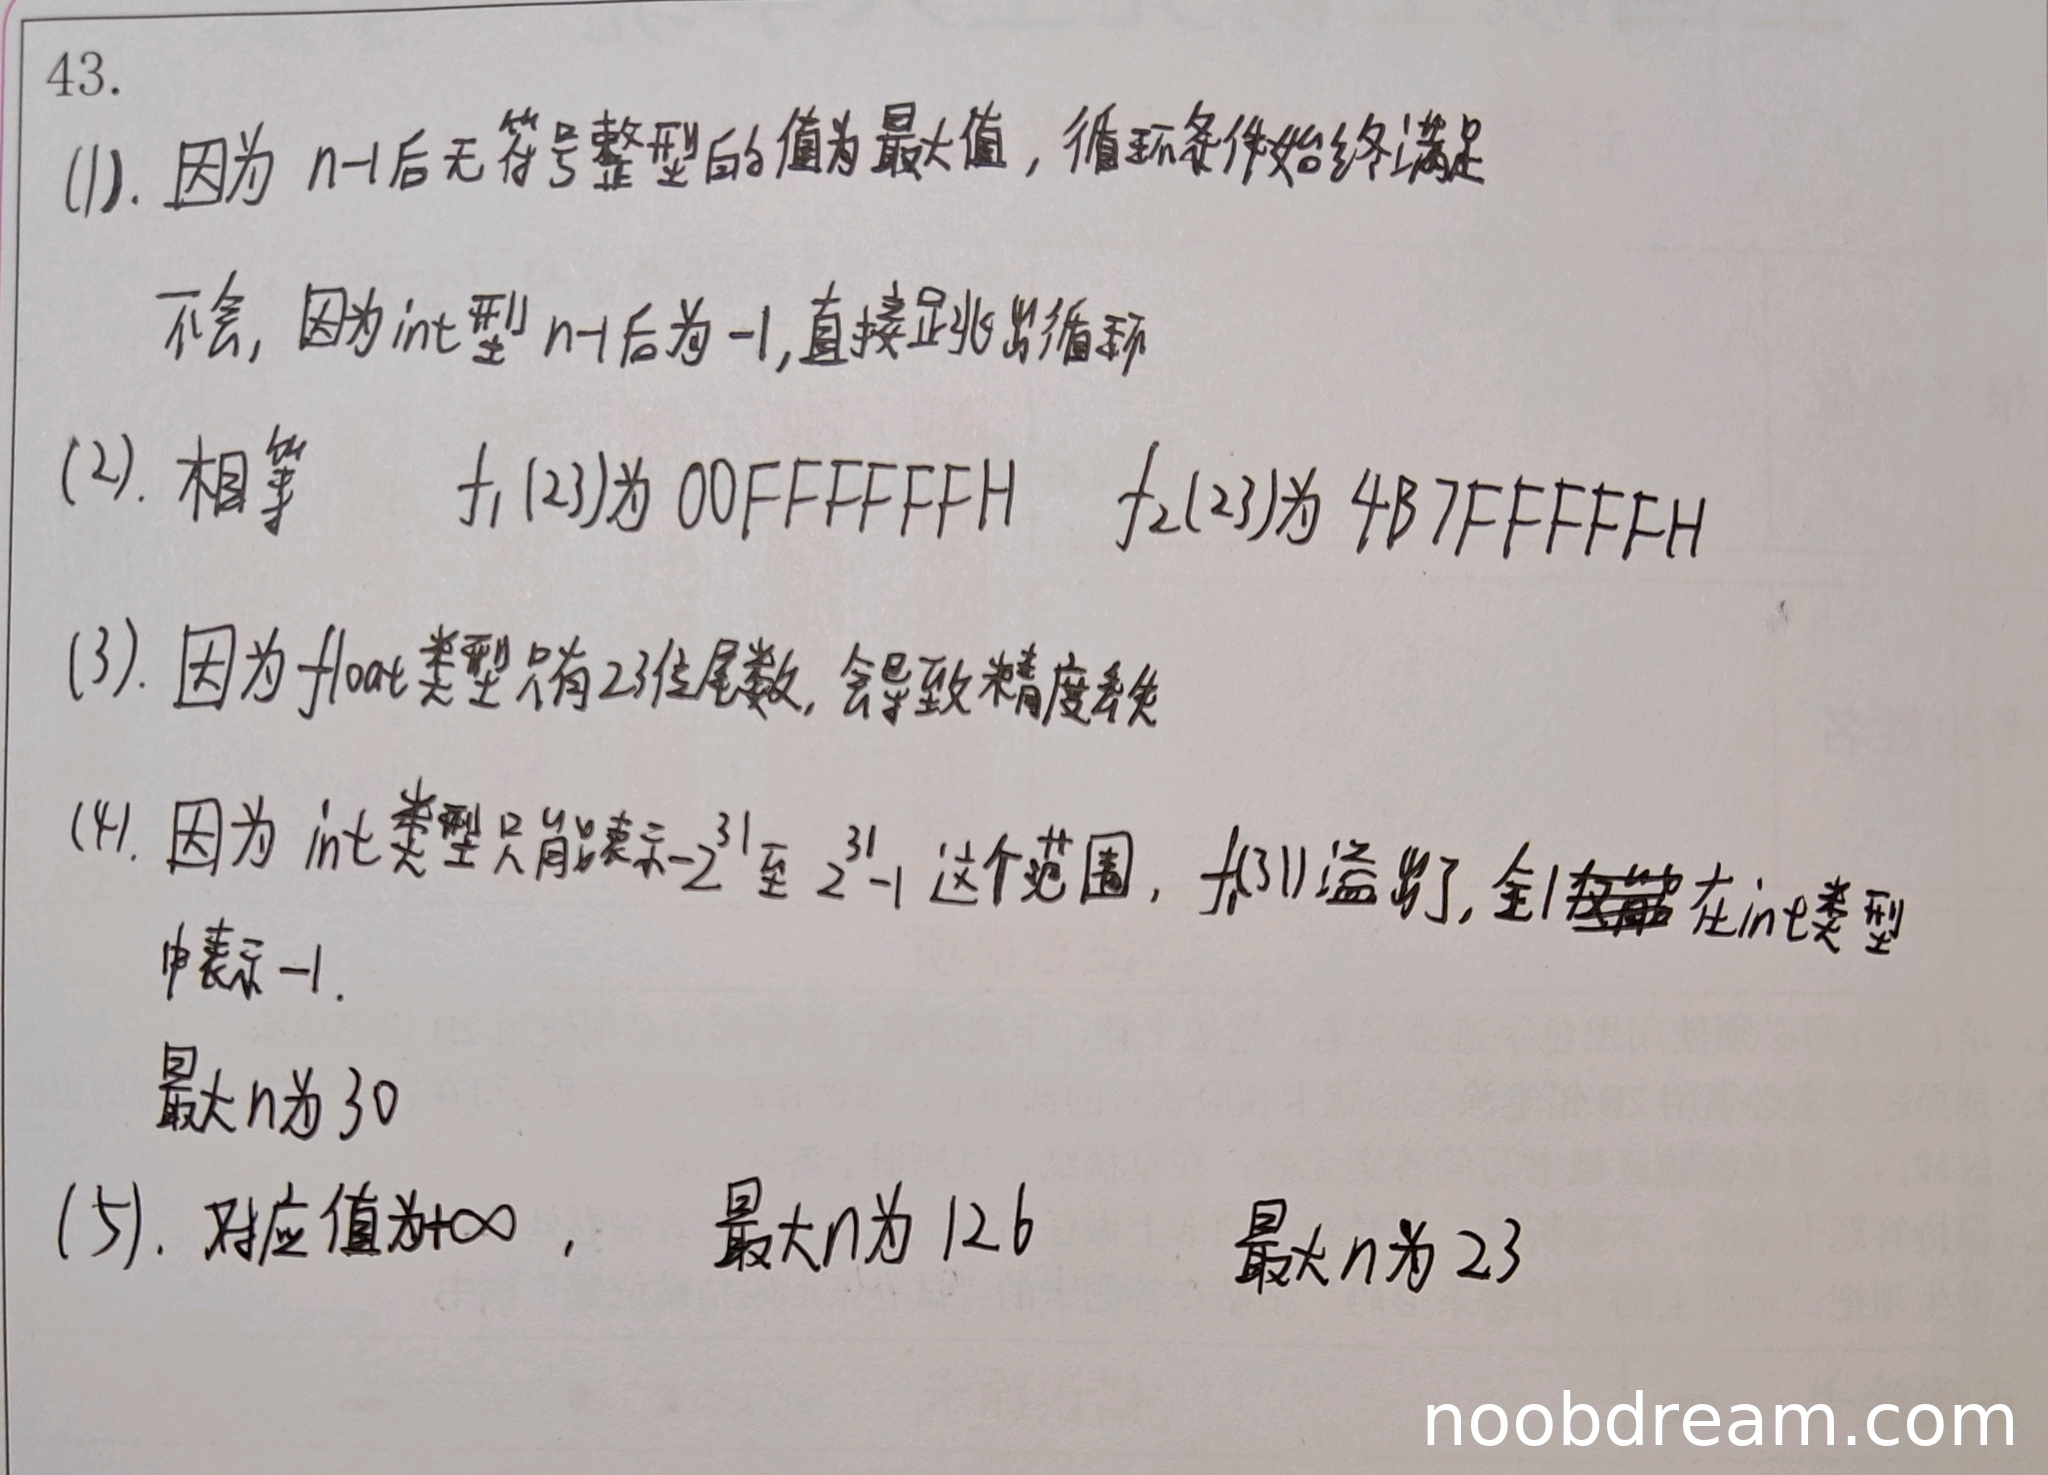 43.
(1). 因为 n-1后无符号整型的值为最大值，循环条件始终满足
不会，因为int型 n-1后为-1,直接跳出循环
(2). 相等 f₁(23)为 00FFFFFFH f₂(23)为 4B7FFFFFH
(3). 因为float类型只有23位尾数，会导致精度丢失
(4). 因为 int类型只能表示-2³¹至 2³¹-1 这个范围，f₁(31)溢出了，全1在int类型
中表示-1.
最大n为30
(5). 对应值为+∞， 最大n为126 最大n为23
noobdream.com